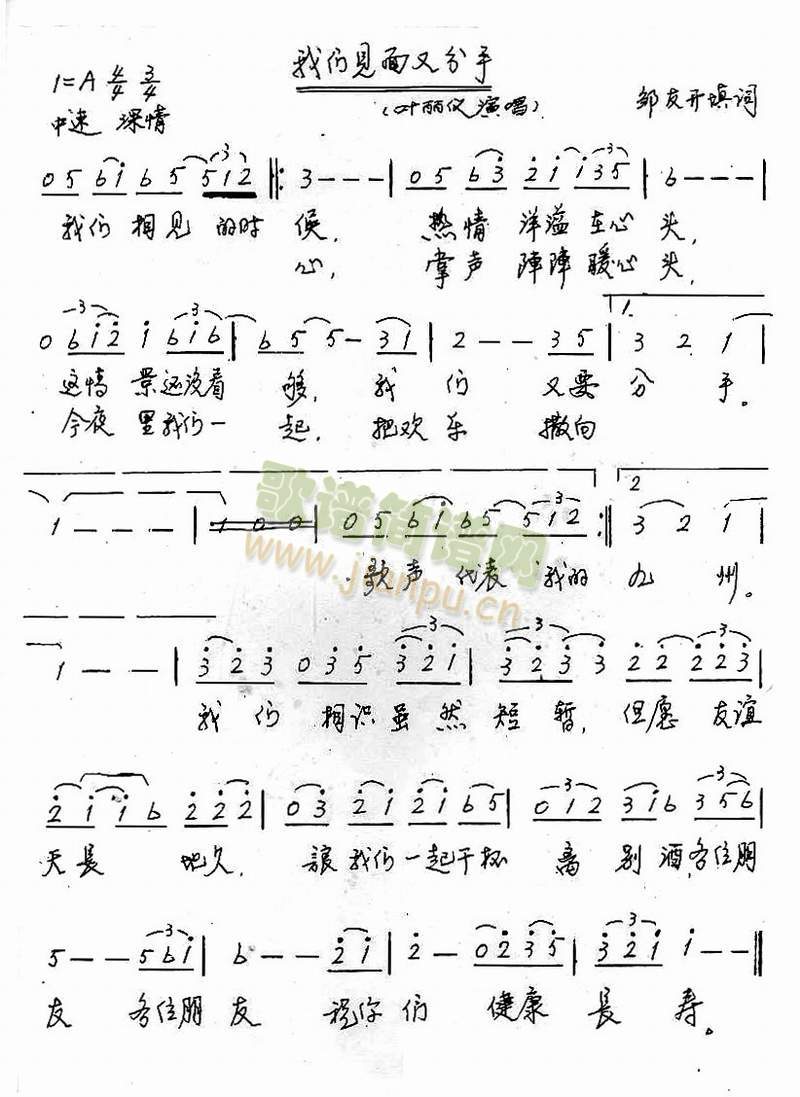 我们见面又分手
1=A 4/4 3/4
(叶丽仪演唱)
邹友开填词
中速 深情
0 5 6 i 6 5 5 1 2 ‖: 3 - - - | 0 5 6 3 2 1 1 3 5 | 6 - - - |
我们 相见 的时 候, 热情 洋溢 在心 头,
心, 掌声 陣陣 暖心 头,
0 6 i 2 i 6 i 6 | 6 5 5 - 3 1 | 2 - - 3 5 | 1. 3 2 1 |
这情 景还没看 够, 我 们 又要 分 手。
今夜 里我们一 起, 把欢 乐 撒向
1 - - - | 1 0 0 | 0 5 6 i 6 5 5 1 2 :‖ 2 3 2 1 |
歌声 代表 我的 九 州。
1 - - | 3 2 3 0 3 5 3 2 1 | 3 2 3 3 2 2 2 2 3 |
我 们 相识 虽 然 短 暂, 但愿 友谊
2 i i 6 2 2 2 | 0 3 2 i 2 i 6 5 | 0 1 2 3 i 6 3 5 6 |
天長 地久, 讓我们一起干杯 离 别 酒,各位朋
5 - - 5 6 i | 6 - - 2 i | 2 - 0 2 3 5 | 3 2 i i - - ‖
友 各位朋 友 祝你 们 健康 長 寿。
歌谱简谱网
www.jianpu.cn